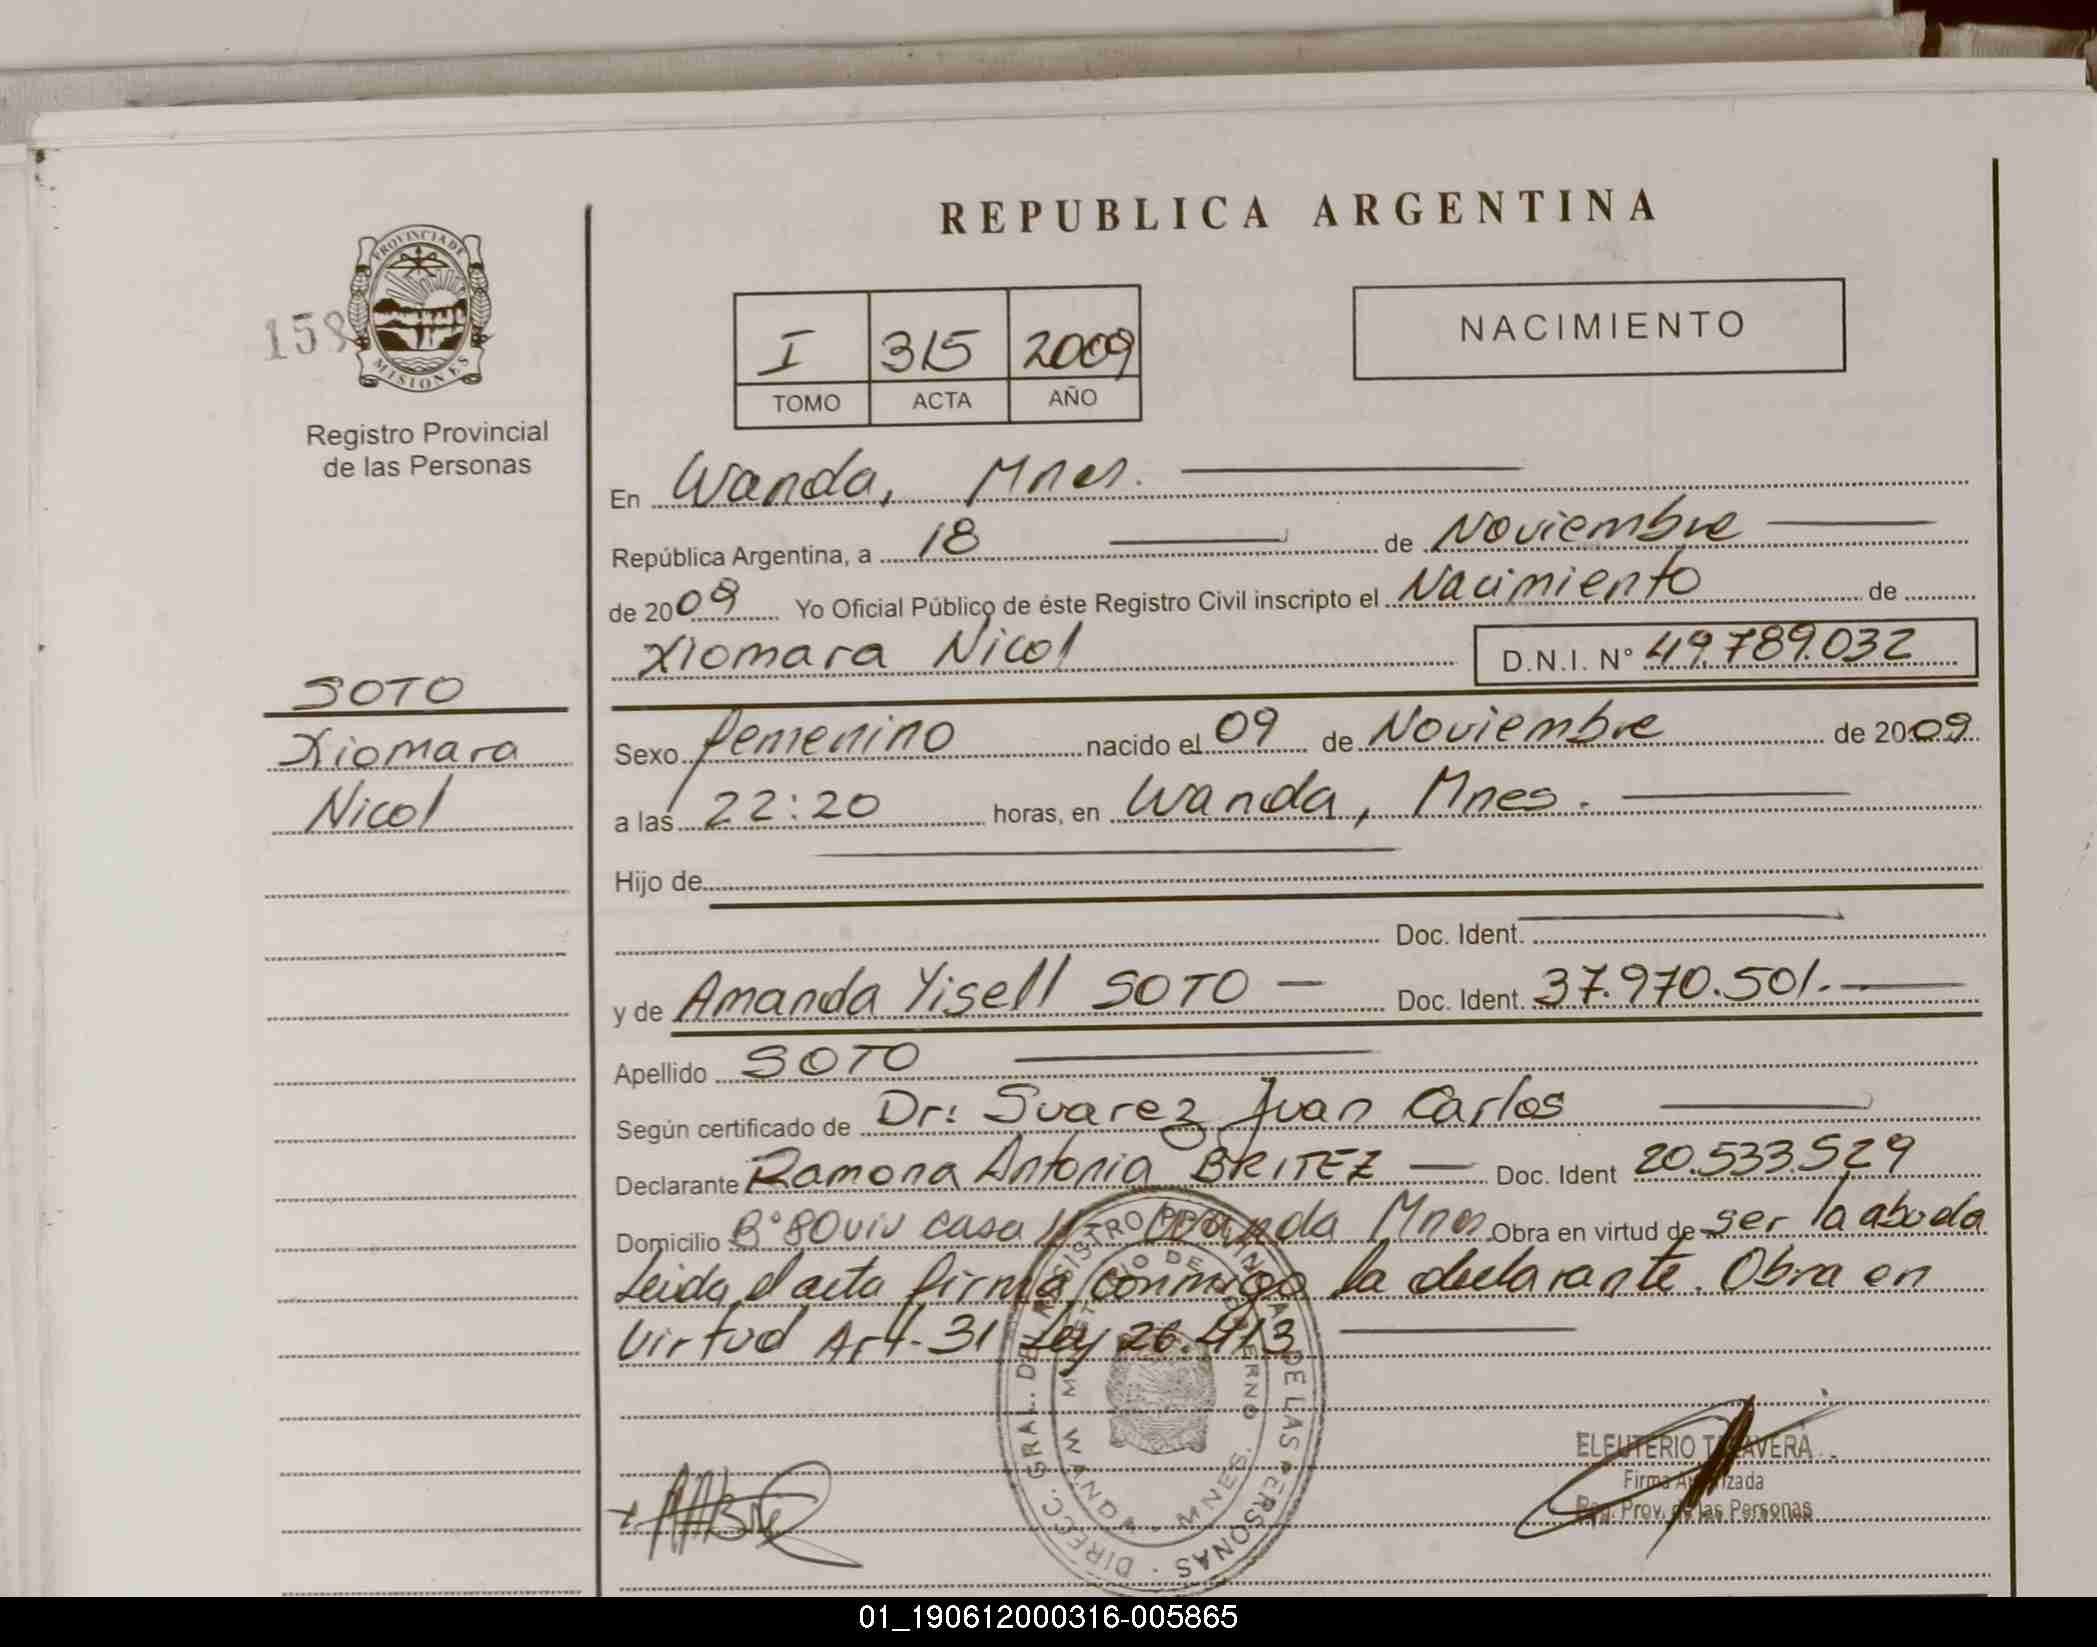 REPUBLICA ARGENTINA
PROVINCIA DE
MISIONES
158
Registro Provincial
de las Personas
I 315 2009
TOMO ACTA AÑO
NACIMIENTO
En Wanda, Mnes.
República Argentina, a 18 de Noviembre
de 2009 Yo Oficial Público de éste Registro Civil inscripto el Nacimiento de
Xiomara Nicol D.N.I. N° 49.789.032
SOTO
Xiomara
Nicol
Sexo femenino nacido el 09 de Noviembre de 2009
a las 22:20 horas, en Wanda, Mnes.
Hijo de
Doc. Ident.
y de Amanda Yisell SOTO — Doc. Ident. 37.970.501.
Apellido SOTO
Según certificado de Dr: Suarez Juan Carlos
Declarante Ramona Antonia BRITEZ — Doc. Ident 20.533.529
Domicilio B° 80 viv casa 11 Wanda Mnes Obra en virtud de ser la abuela
Leida el acta firma conmigo la declarante. Obra en
Virtud Art. 31 Ley 26.413
DIRECC. GRAL. DEL REGISTRO PROVINCIAL DE LAS PERSONAS
MINISTERIO DE GOBIERNO
WANDA - MNES.
ELEUTERIO TALAVERA
Firma Autorizada
Reg. Prov. de las Personas
01_190612000316-005865